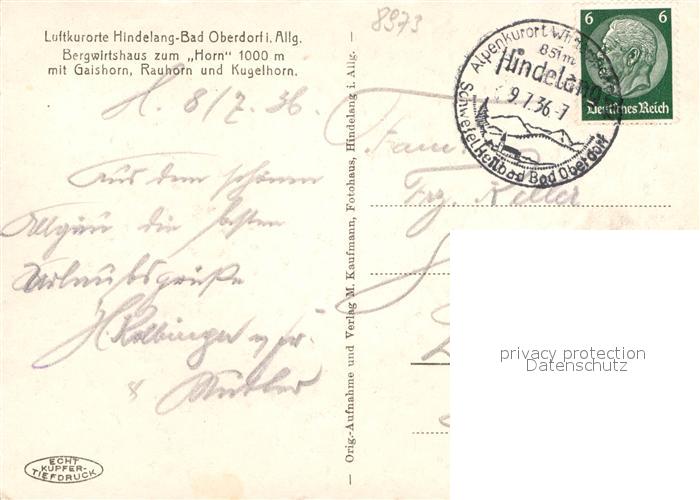 Luftkurorte Hindelang-Bad Oberdorf i. Allg.
Bergwirtshaus zum „Horn" 1000 m
mit Gaishorn, Rauhorn und Kugelhorn.
H. 8/7. 36
Aus dem schönen
Allgäu die besten
Urlaubsgrüße
ECHT
KUPFER-
TIEFDRUCK
Orig.-Aufnahme und Verlag M. Kaufmann, Fotohaus, Hindelang i. Allg.
8973
Alpenkurort
851 m
Hindelang
9.7.36-7
Schwefelheilbad Bad Oberdorf
6 6
Deutsches Reich
Fam.
Frz. Keller
privacy protection
Datenschutz